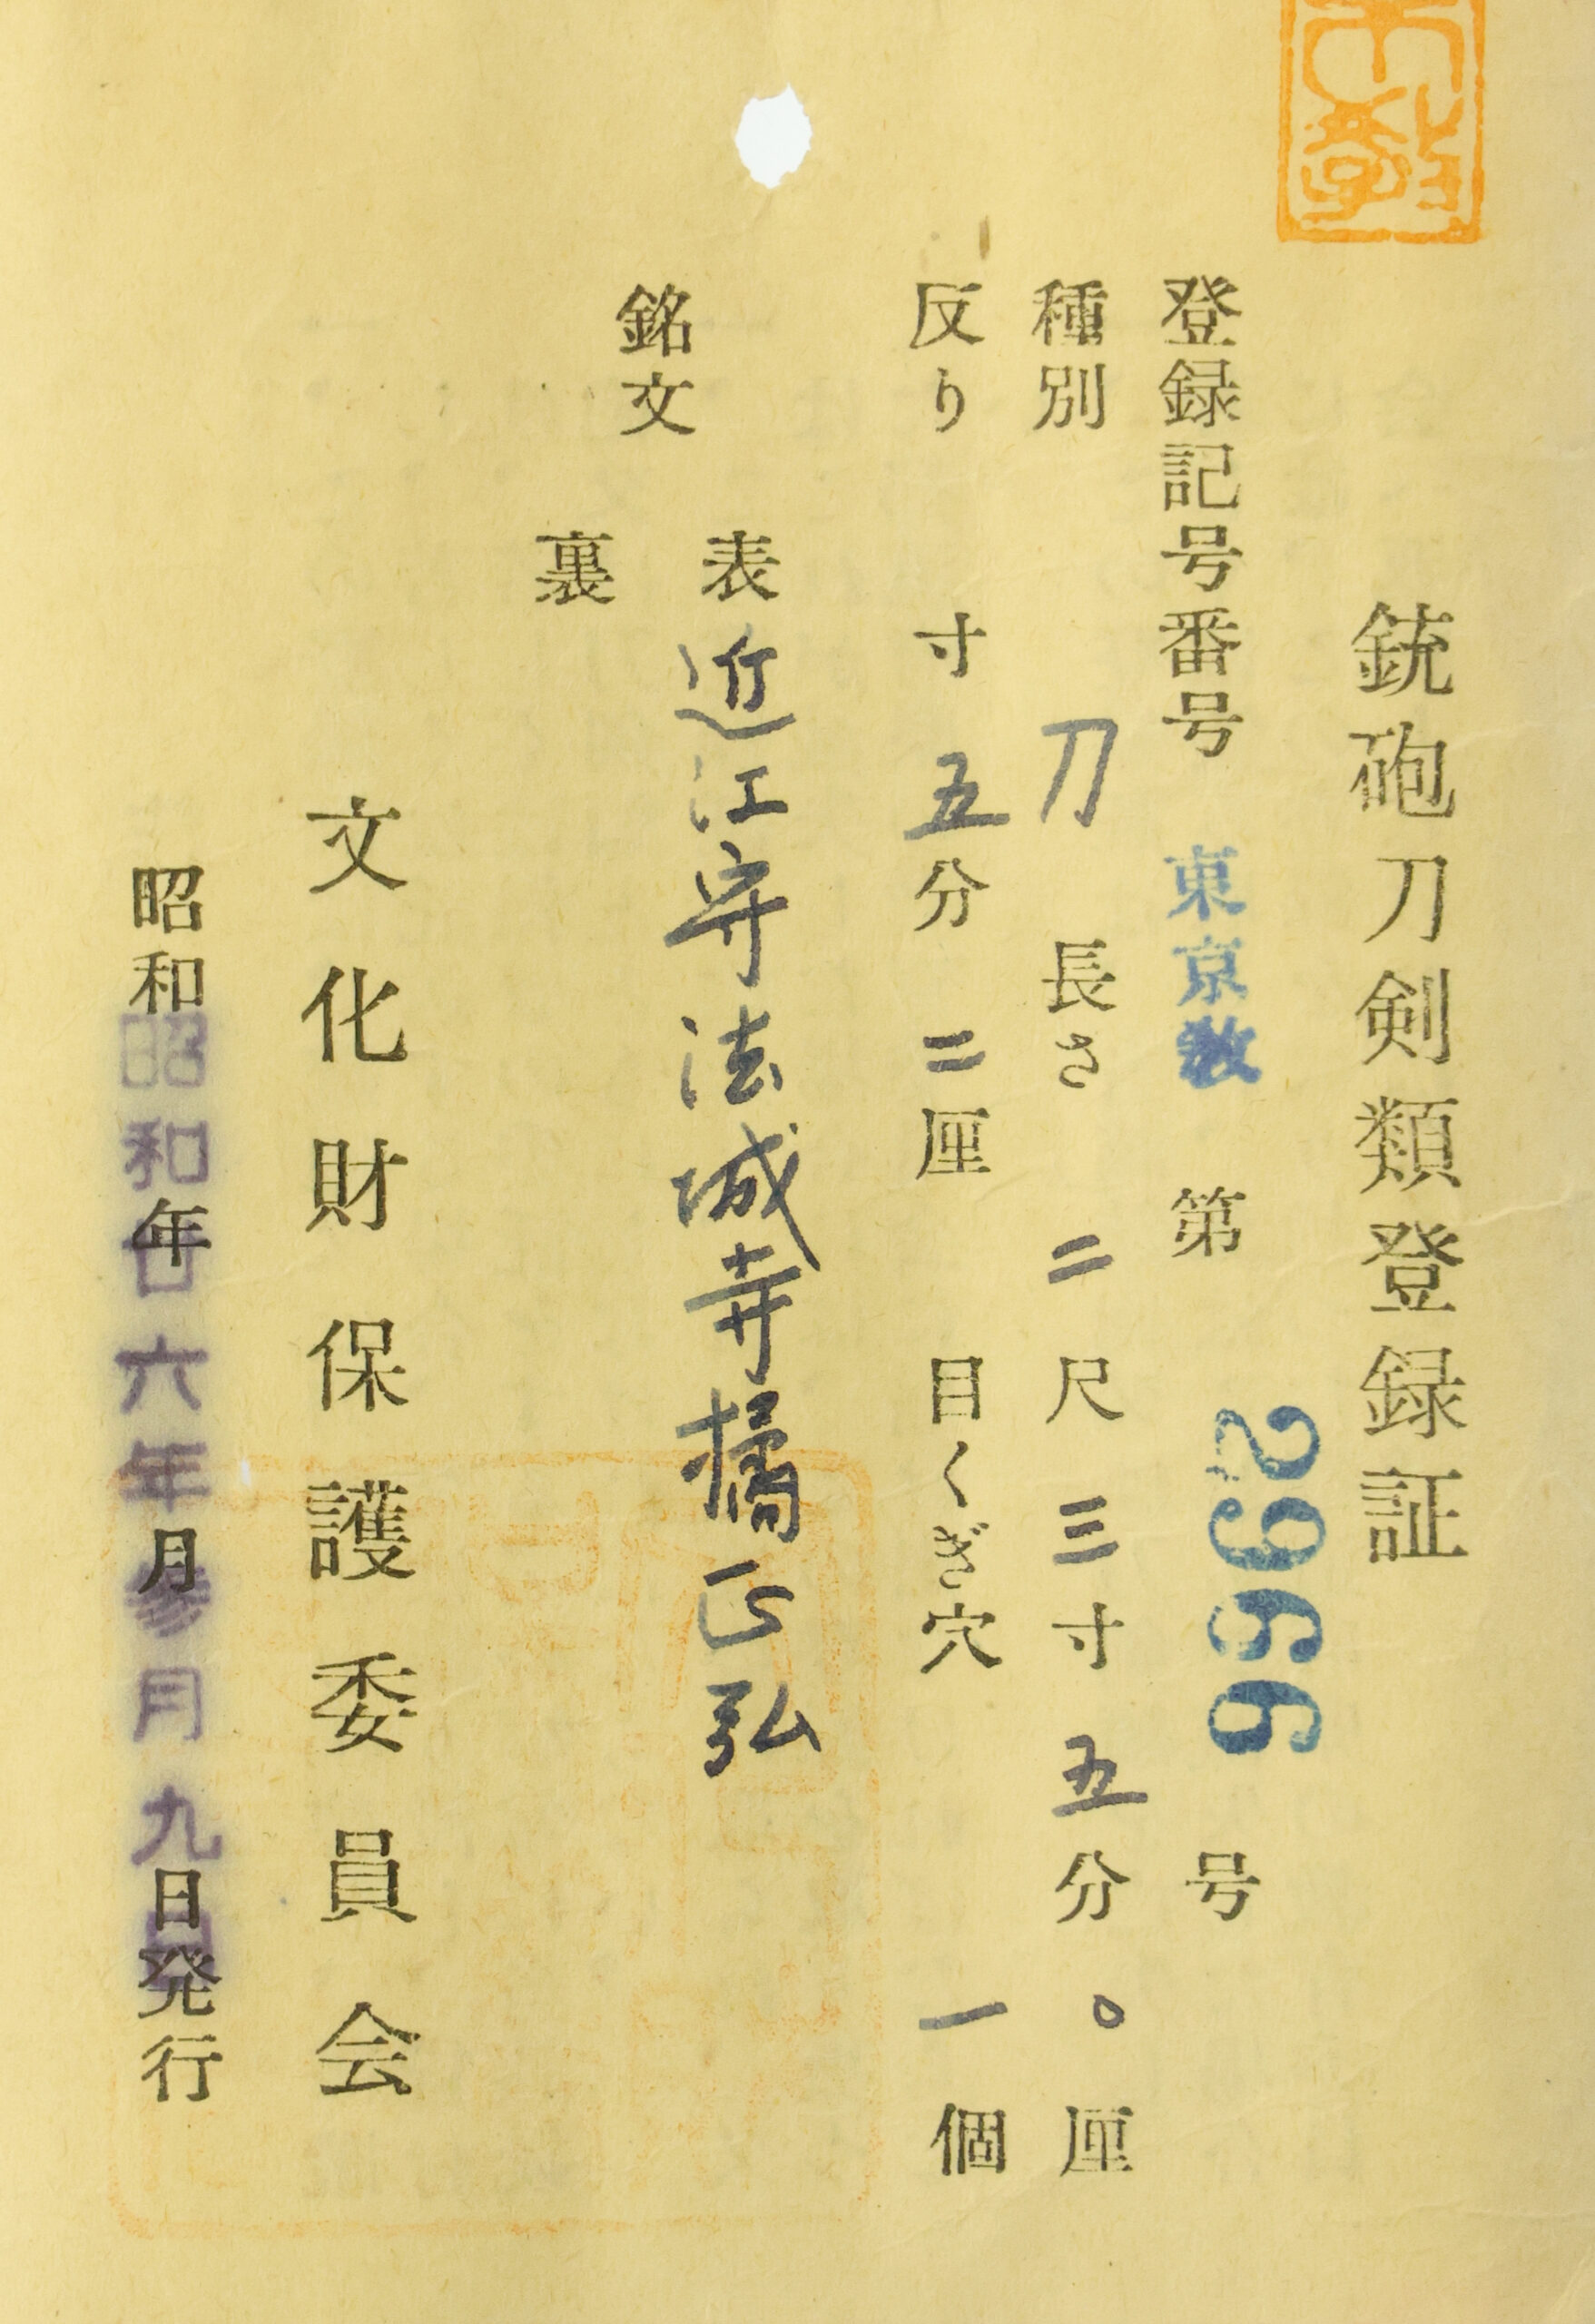 銃砲刀剣類登録証
登録記号番号 東京教 第 2966 号
種別 刀 長さ 二尺三寸五分〇厘
反り 寸五分二厘 目くぎ穴 一個
銘文
表 近江守法城寺橘正弘
裏
文化財保護委員会
昭和 昭和廿六年参月九日 年 月 日発行